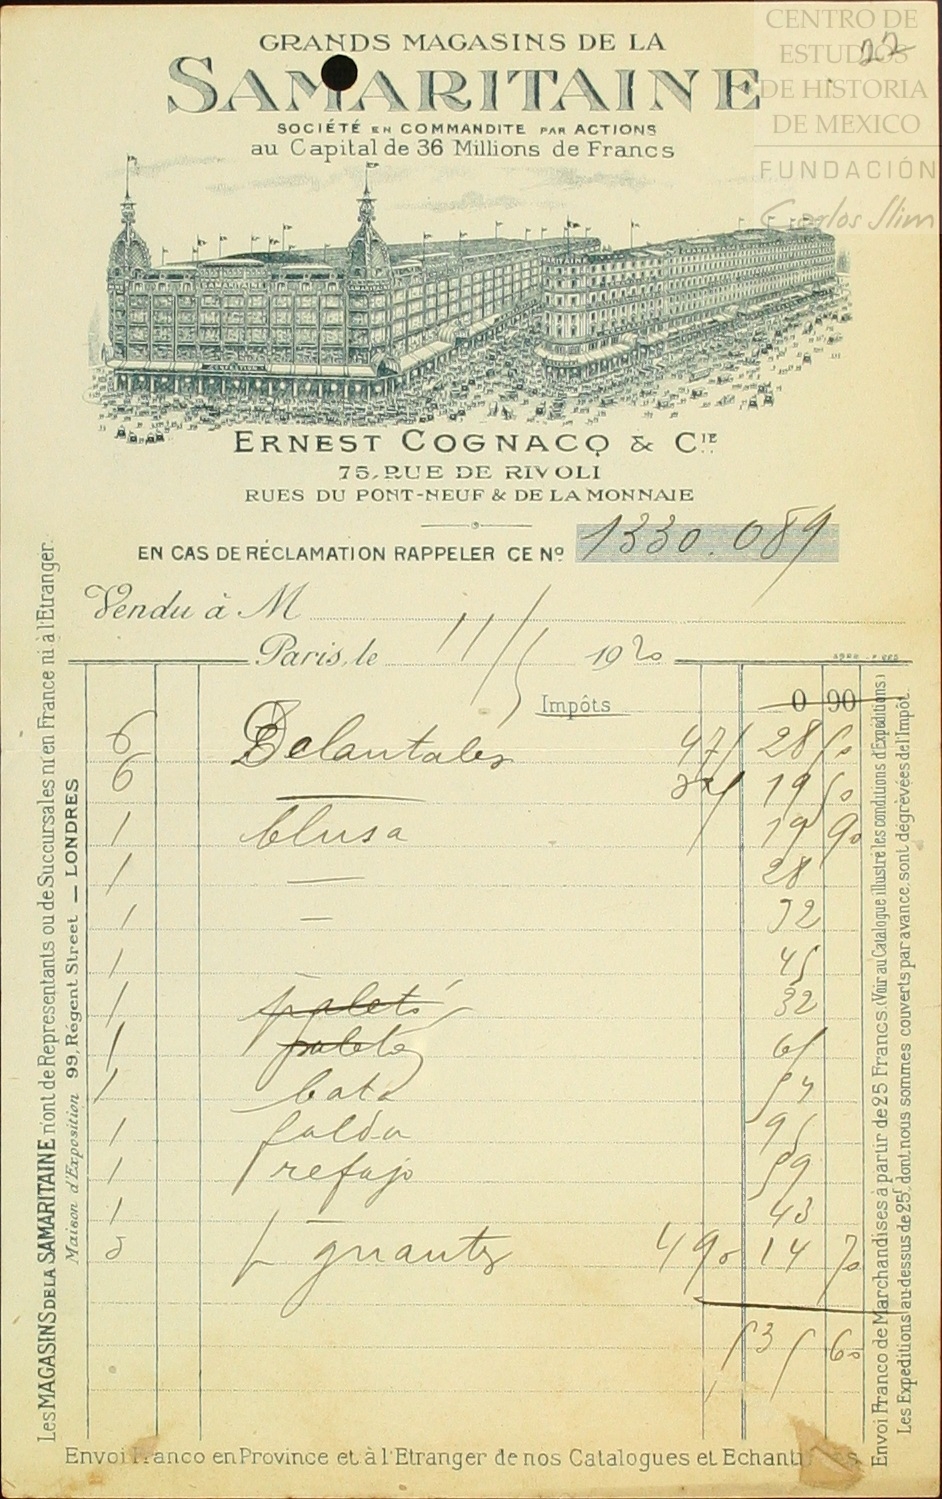 CENTRO DE
ESTUDIOS
DE HISTORIA
DE MEXICO
FUNDACIÓN
Carlos Slim
22
GRANDS MAGASINS DE LA
SAMARITAINE
SOCIÉTÉ EN COMMANDITE PAR ACTIONS
au Capital de 36 Millions de Francs
SAMARITAINE
ERNEST COGNACQ & CIE
75, RUE DE RIVOLI
RUES DU PONT-NEUF & DE LA MONNAIE
EN CAS DE RÉCLAMATION RAPPELER CE No 1330.089
Vendu à M
Paris, le 11/5 1920
Impôts 0 90
6 Delantales 475 28 50
6 19 50
1 blusa 19 90
1 — 28
1 — 32
1 45
1 paleto 32
1 paleto 65
1 bata 54
1 falda 95
1 refajo 59
1 — 43
3 guantes 4 90 14 70
535 60
Les MAGASINS DE LA SAMARITAINE n'ont de Représentants ou de Succursales ni en France ni à l'Etranger.
Maison d'Exposition 99, Régent Street — LONDRES
Envoi Franco de Marchandises à partir de 25 Francs. (Voir au Catalogue illustré les conditions d'Expéditions)
Les Expéditions au-dessus de 25f, dont nous sommes couverts par avance, sont dégrévées de l'Impôt.
Envoi Franco en Province et à l'Etranger de nos Catalogues et Echantillons